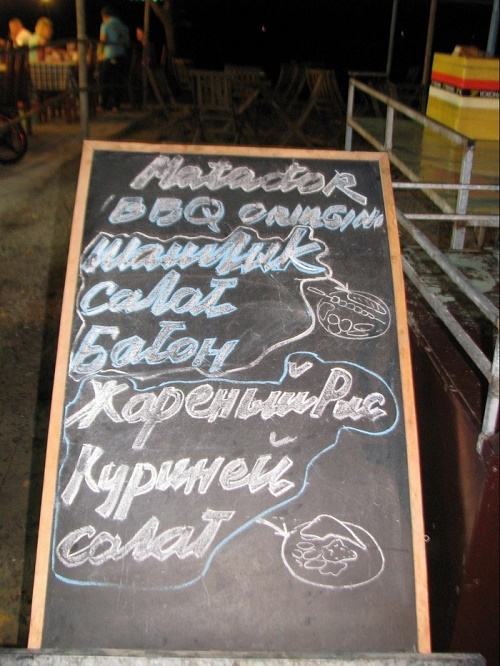 Matador
BBQ ORINGINI
шашлик
салат
Батон
Жареный Рис
Куриней
салат